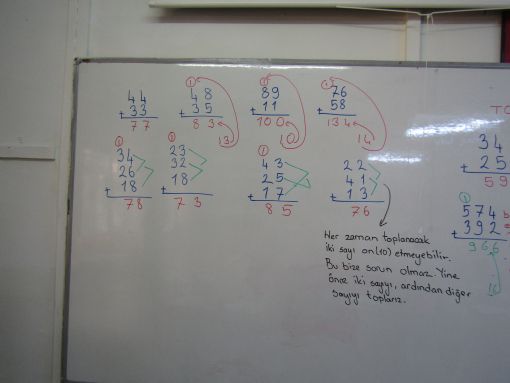 44
+ 33
77
① 48
+ 35
83
13
① 89
+ 11
100
10
① 76
+ 58
134
14
① 34
26
+ 18
78
① 23
32
+ 18
73
① 43
25
+ 17
85
22
41
+ 13
76
Her zaman toplanacak
iki sayı on(10) etmeyebilir.
Bu bize sorun olmaz. Yine
önce iki sayıyı, ardından diğer
sayıyı toplarız.
TO
34
+ 25
59
① 574
+ 392
966